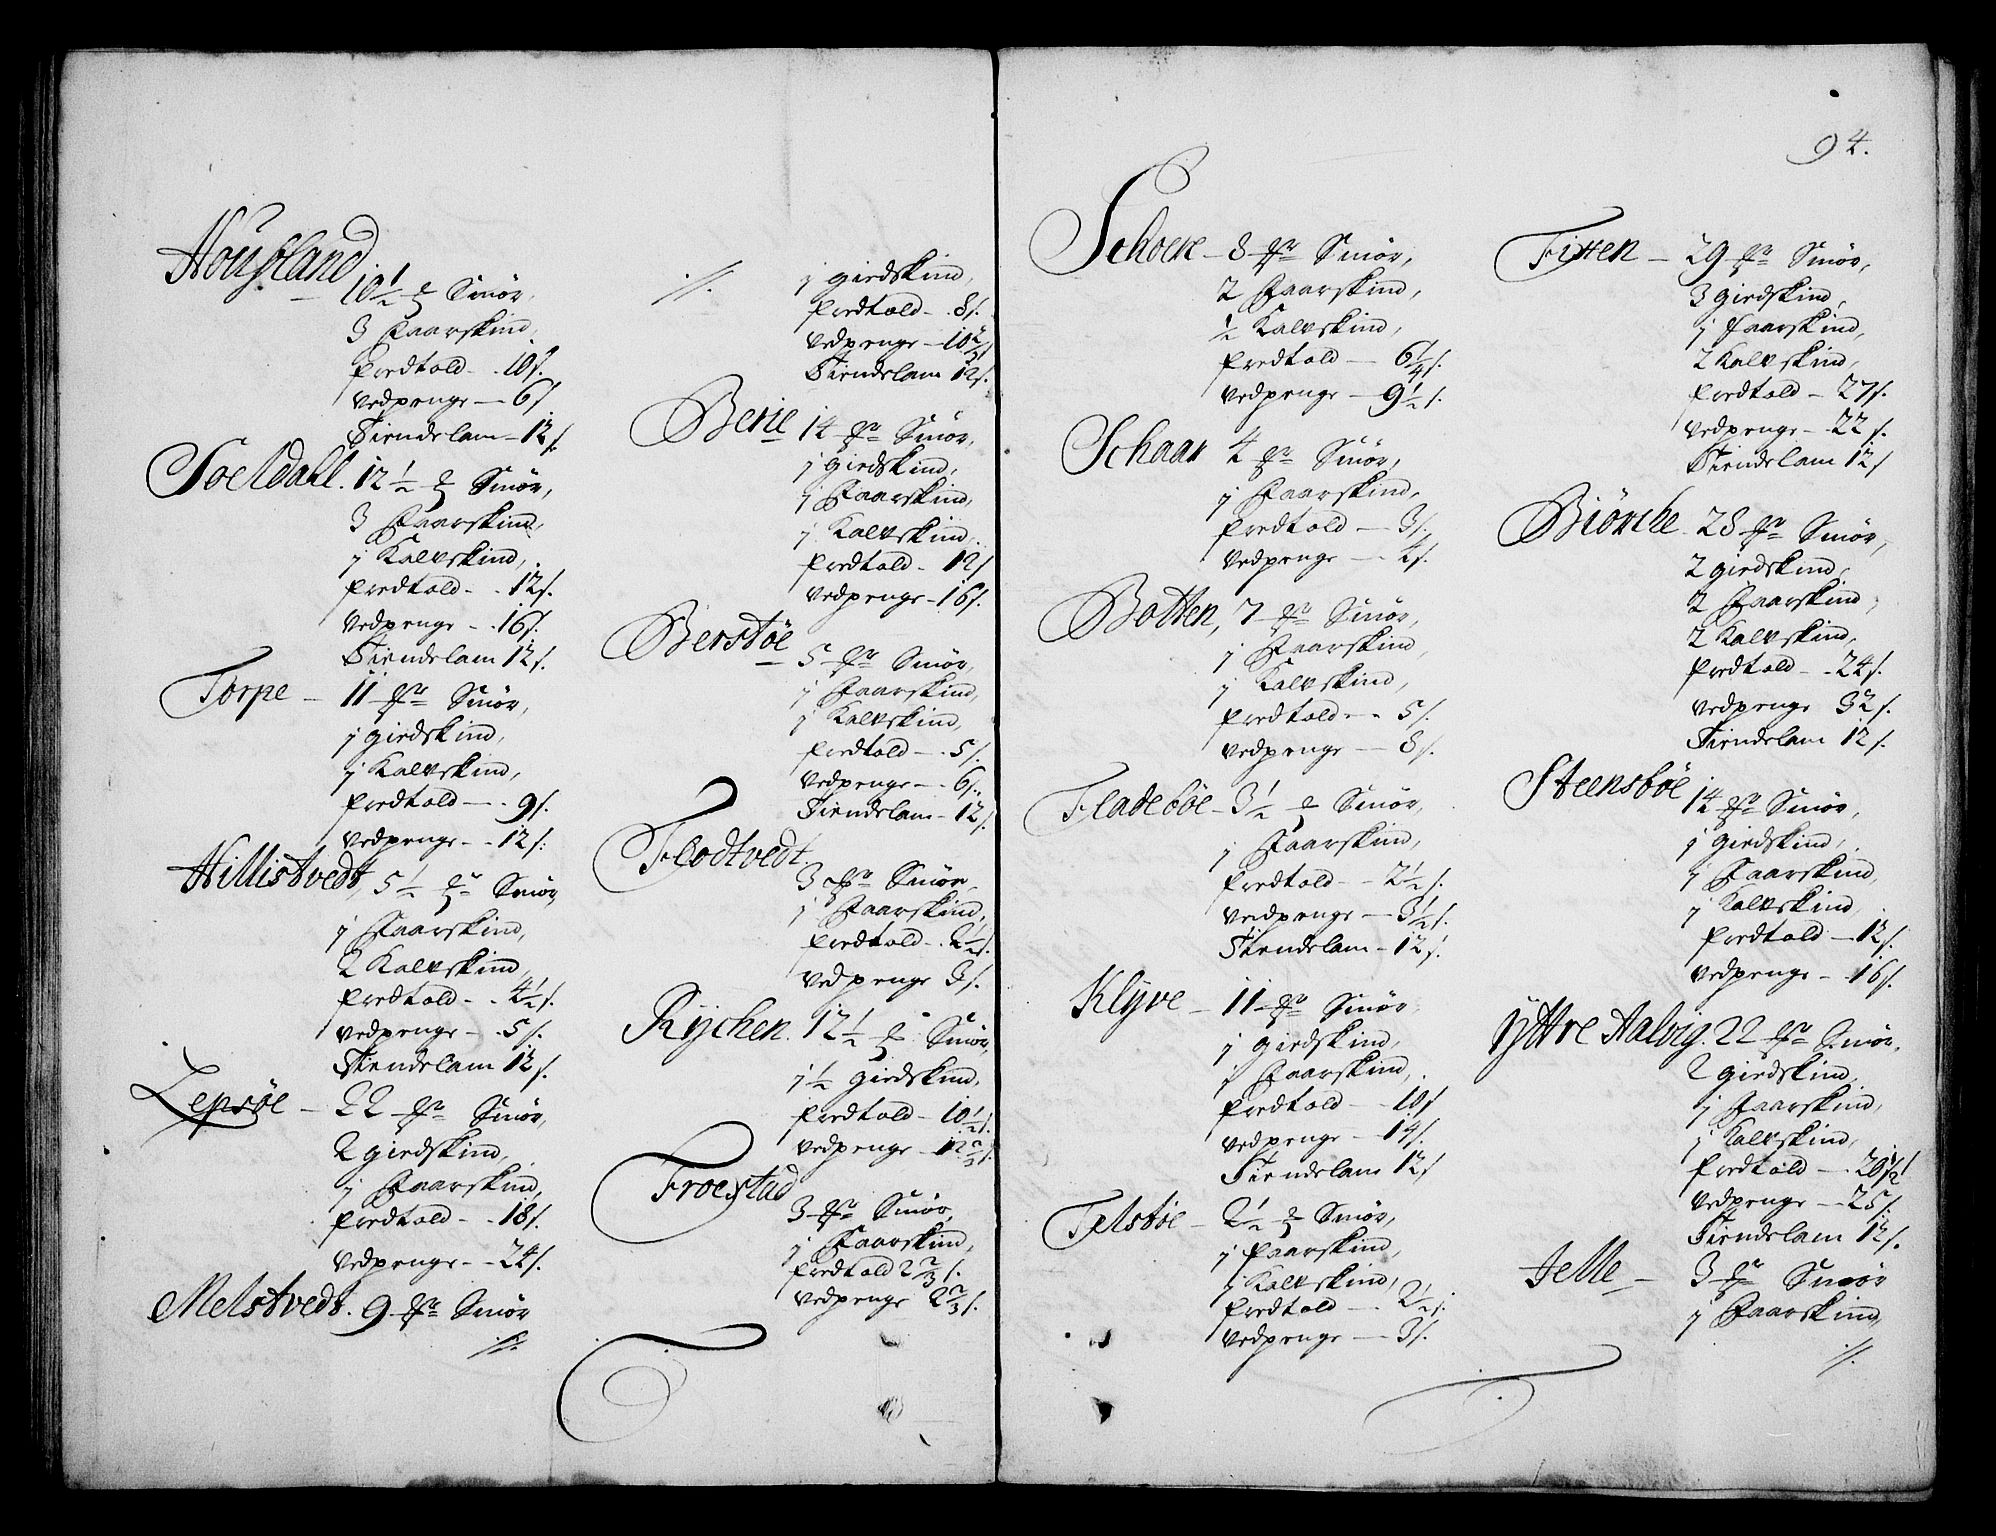 Housland
10½ Smör,
3 Faarskind,
Fredtold - 10 s.
Vedpenge - 6 s
Tiendelam - 12 s.
Soeldall. 12½ Smör,
3 Faarskind,
j Kalvskind,
Fredtold - 12 s.
Vedpenge - 16 s.
Tiendelam 12 s.
Torpe - 11 Smör,
j giedskind,
j Kalvskind,
Fredtold - 9 s.
Vedpenge - 12 s.
Hillistvedt, 5½ Smör,
j Faarskind,
2 Kalvskind,
Fredtold - 4½ s.
Vedpenge - 5 s.
Tiendelam 12 s.
Lepsöe - 22 Smör,
2 giedskind,
j Faarskind,
Fredtold - 18 s.
Vedpenge - 24 s.
Melstvedt. 9 Smör
·/.
·/. j giedskind,
Fredtold - 8 s.
Vedpenge - 10⅔ s
Tiendelam 12 s.
Berie 14 Smör,
j giedskind,
j Faarskind,
j Kalvskind,
Fredtold - 12 s
Vedpenge - 16 s.
Berstöe
5 Smör,
j Faarskind,
j Kalvskind,
Fredtold - 5 s.
Vedpenge - 6 s.
Tiendelam - 12 s.
Flodtvedt.
3 Smör,
j Faarskind,
Fredtold - 2½ s.
Vedpenge 3 s.
Rychen. 12½ Smör,
j½ giedskind,
Fredtold - 10½ s.
Vedpenge - 12⅔ s.
Froestad
3 Smör,
j Faarskind,
Fredtold 2⅔ s.
Vedpenge 2⅔ s.
94.
Schoere - 8 Smör,
2 Faarskind,
½ Kalvskind,
Fredtold - 6¼ s.
Vedpenge - 9½ s.
Schaar 4 Smör,
j Faarskind,
Fredtold - 3 s.
Vedpenge - 4 s.
Botten, 7 Smör,
j Faarskind,
j Kalvskind,
Fredtold - 5 s.
Vedpenge - 8 s.
Fladeböe - 3½ Smör,
j Faarskind,
Fredtold - 2½ s.
Vedpenge - 3½ s.
Tiendelam - 12 s.
Klyve - 11 Smör,
j giedskind,
j Faarskind,
Fredtold - 10 s
Vedpenge - 14 s.
Tiendelam 12 s
Telstöe - 2½ Smör,
j Faarskind,
j Kalvskind,
Fredtold - 2½ s.
Vedpenge - 3 s.
Fitten - 29 Smör,
3 giedskind,
j Faarskind,
2 Kalvskind,
Fredtold - 27 s.
Vedpenge - 22 s.
Tiendelam 12 s
Biörche 28 Smör,
2 giedskind,
2 Faarskind,
2 Kalvskind,
Fredtold - 24 s.
Vedpenge 32 s.
Tiendelam 12 s.
Steensböe 14 Smör,
j giedskind,
j Faarskind,
j Kalvskind,
Fredtold - 12 s.
Vedpenge - 16 s.
Yttre Aalvig. 22 Smör,
2 giedskind,
j Faarskind,
j Kalvskind,
Fredtold - 20½ s
Vedpenge - 25 s.
Tiendelam 12 s.
Jelle - 3 Smör
j Faarskind,
·/.